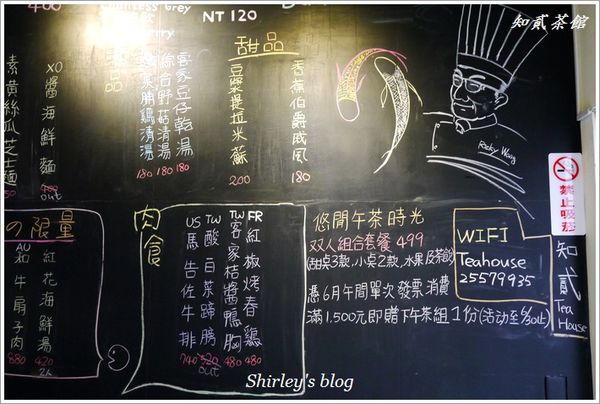 知貳茶館
400
Grey
NT 120
甜品
香蕉伯爵戚風
180
豆漿提拉米蘇
200
客家豆仔乾湯
180
綜合野菇清湯
180
清湯
180
XO醬海鮮麵
400
out
素黃絲瓜芝士麵
50
Ricky Wang
禁止吸菸
知貳
Tea House
の限量
紅花海鮮湯
420
2人
AU和牛扇子肉
880
肉食
FR紅椒烤春雞
480
TW客家桔醬鴨胸
480
TW酸白菜蹄膀
520
out
US馬告佐牛排
740
悠閒午茶時光
双人組合套餐 499
(甜桌3款,小桌2款,水果及茶飲)
憑6月午間單次發票消費
滿1,500元即贈下午茶組1份(活动至6/30止)
WIFI
Teahouse
25579935
Shirley's blog